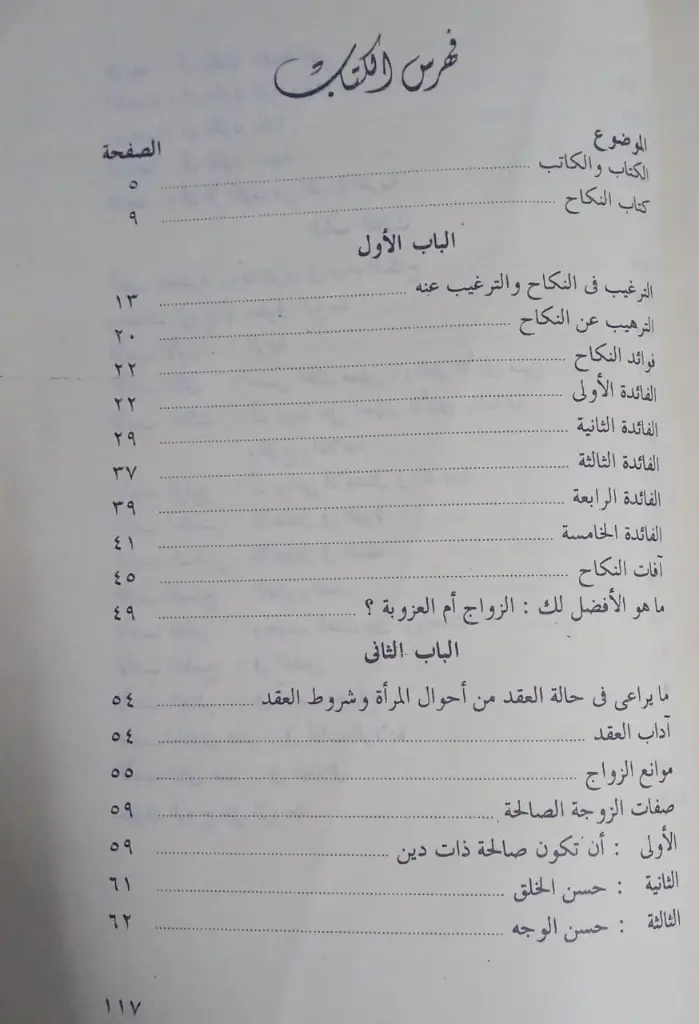 فهرس الكتاب
الموضوع الصفحة
الكتاب والكاتب ٥
كتاب النكاح ٩
الباب الأول
الترغيب فى النكاح والترغيب عنه ١٣
الترهيب عن النكاح ٢٠
فوائد النكاح ٢٢
الفائدة الأولى ٢٢
الفائدة الثانية ٢٩
الفائدة الثالثة ٣٧
الفائدة الرابعة ٣٩
الفائدة الخامسة ٤١
آفات النكاح ٤٥
ما هو الأفضل لك : الزواج أم العزوبة ؟ ٤٩
الباب الثانى
ما يراعى فى حالة العقد من أحوال المرأة وشروط العقد ٥٤
آداب العقد ٥٤
موانع الزواج ٥٥
صفات الزوجة الصالحة ٥٩
الأولى : أن تكون صالحة ذات دين ٥٩
الثانية : حسن الخلق ٦١
الثالثة : حسن الوجه ٦٢
١١٧